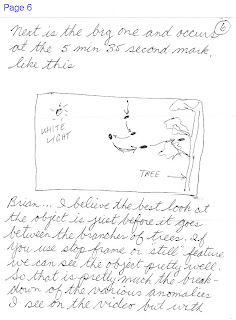 Page 6
6
Next is the big one and occurs
at the 5 min 35 second mark,
like this
WHITE
LIGHT
TREE
Brian... I believe the best look at
the object is just before it goes
between the branches of trees. If
you use stop frame or still feature
we can see the object pretty well.
So that is pretty much the break-
down of the various anomalies
I see on the video but with